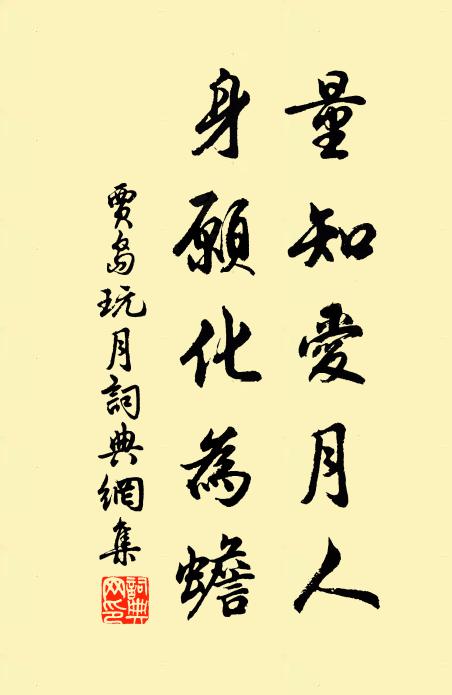 量知愛月人
身願化為蟾
賈島玩月詞典網集